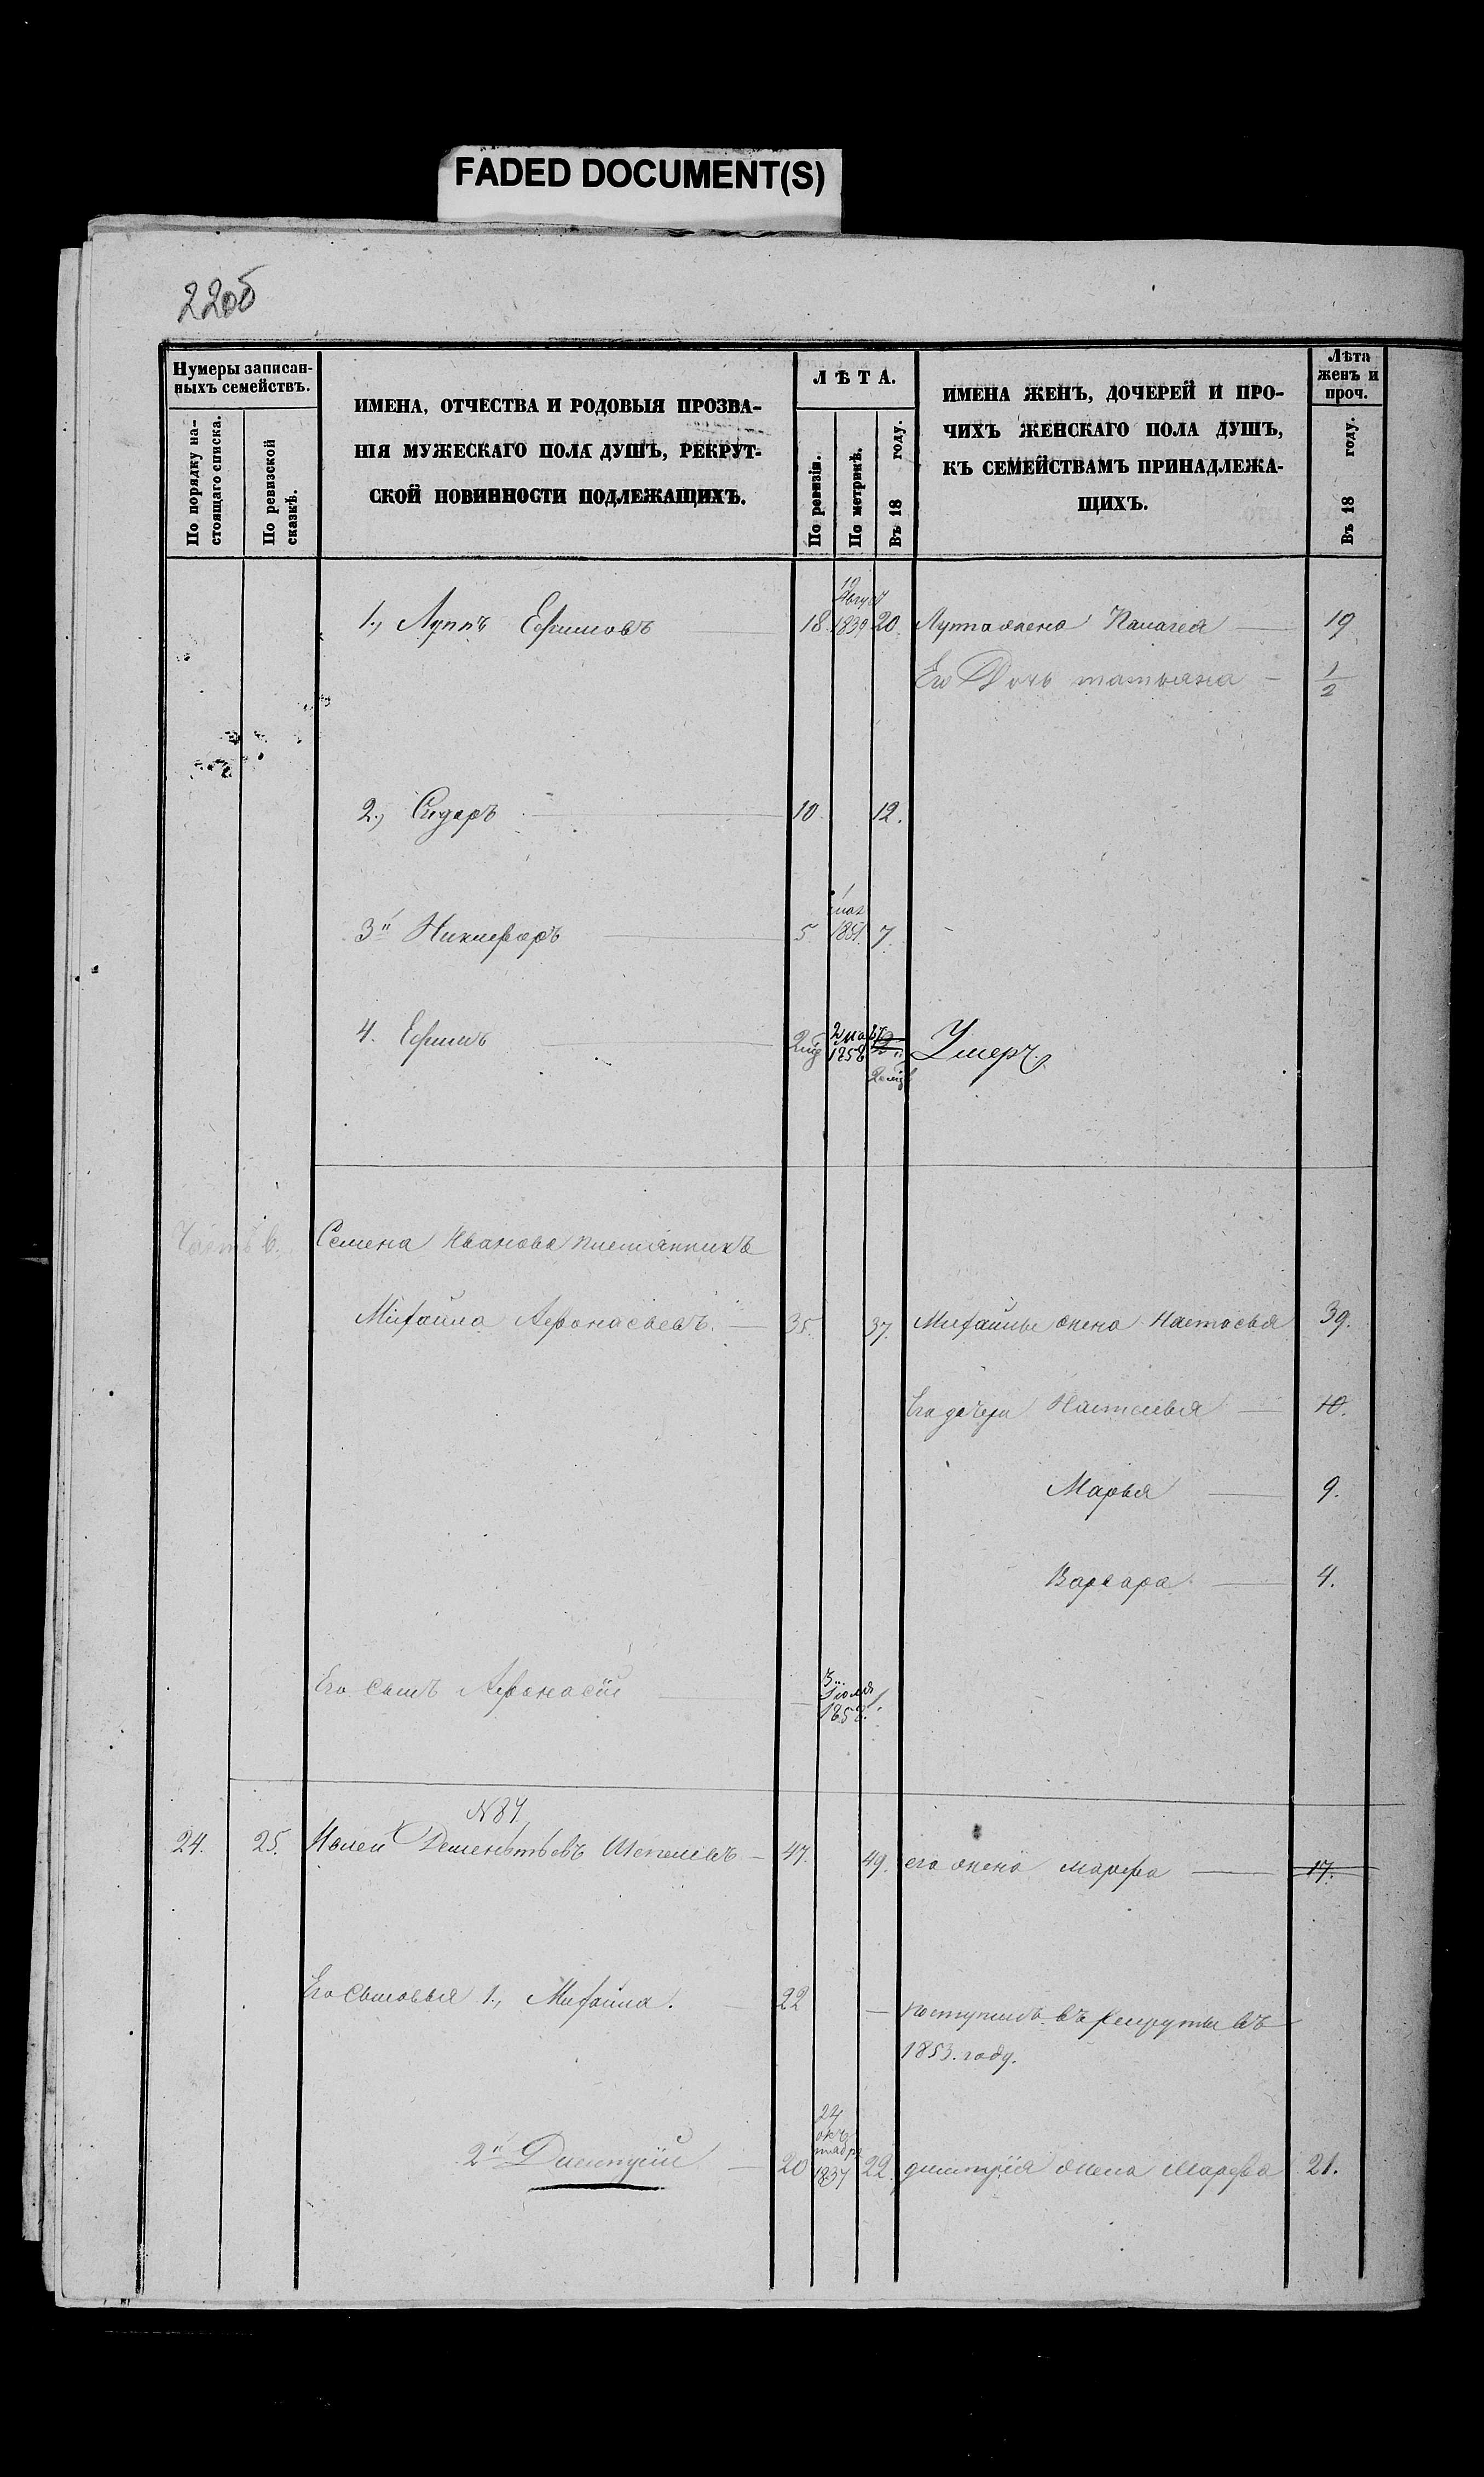 FADED DOCUMENT(S)
22об
Нумеры записан-
ныхъ семействъ.
По порядку на-
стоящаго списка.
По ревизской
сказкѣ.
ИМЕНА, ОТЧЕСТВА И РОДОВЫЯ ПРОЗВА-
НІЯ МУЖЕСКАГО ПОЛА ДУШЪ, РЕКРУТ-
СКОЙ ПОВИННОСТИ ПОДЛЕЖАЩИХЪ.
ЛѢТА.
По ревизіи.
По метрикѣ.
Въ 18 году.
ИМЕНА ЖЕНЪ, ДОЧЕРЕЙ И ПРО-
ЧИХЪ ЖЕНСКАГО ПОЛА ДУШЪ,
КЪ СЕМЕЙСТВАМЪ ПРИНАДЛЕЖА-
ЩИХЪ.
Лѣта
женъ и
проч.
Въ 18 году.
1., Луппъ Ефимовъ 18. 19 Август 1839 20. Луппа жена Палагея 19
Его Дочь татьяна 1/2
2., Сидоръ 10. 12.
3й Никифоръ 5 1851. 7.
4. Ефимъ 1858 Умеръ
Часть в. Семена Иванова племянникъ
Михайла Афонасьевъ. 35. 37. Михайлы жена Настасья 39.
Его дочери Настасья 10.
Марья 9.
Варвара 4.
Его сынъ Афонасій 3 Іюля 1858. 1.
N 87
24. 25. Дементьевъ 47. 49. его жена марфа 17.
Его сыновья 1., Михайла. 22 — поступилъ въ рекруты въ
1853. году.
2й Дмитрій 20 24 октября 1837 22. дмитрія жена Марфа 21.